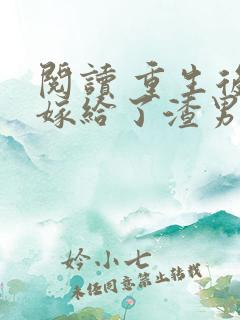 閱讀 重生後
嫁給了渣男
妗小七
未经同意禁止转载